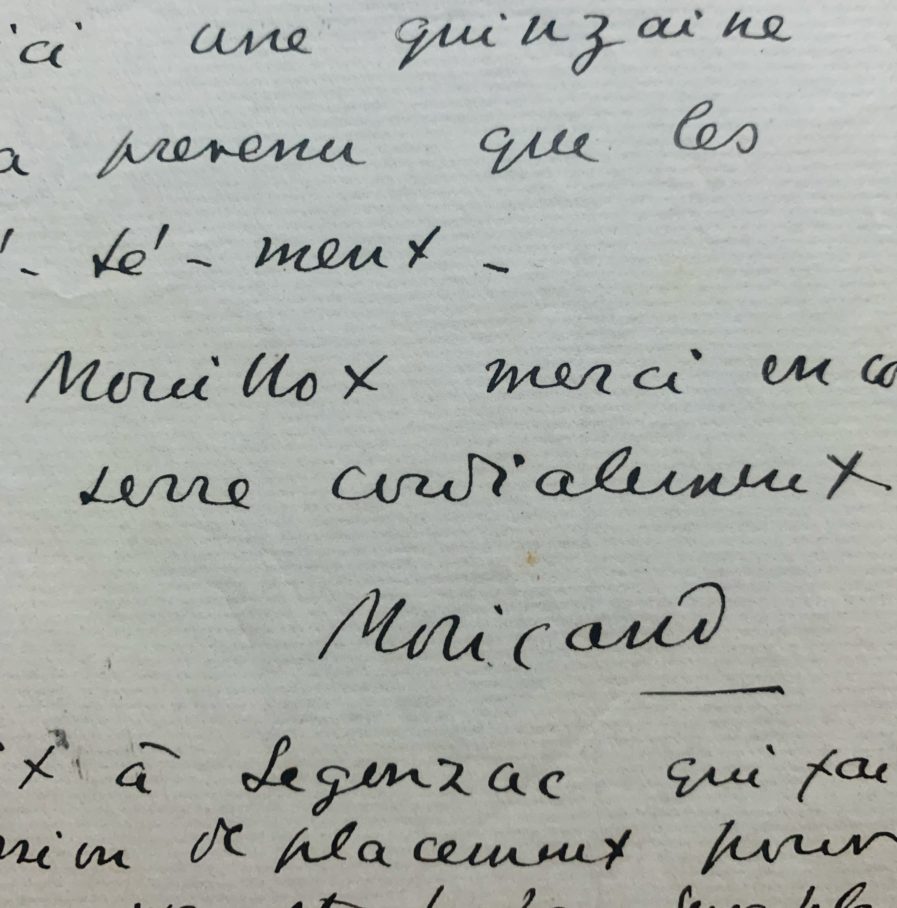 ici une quinzaine
a prevenu que les
- té - ment -
Mouillot merci enco
serre cordialement
Moricand
à Segonzac qui fai
sion de placement pour